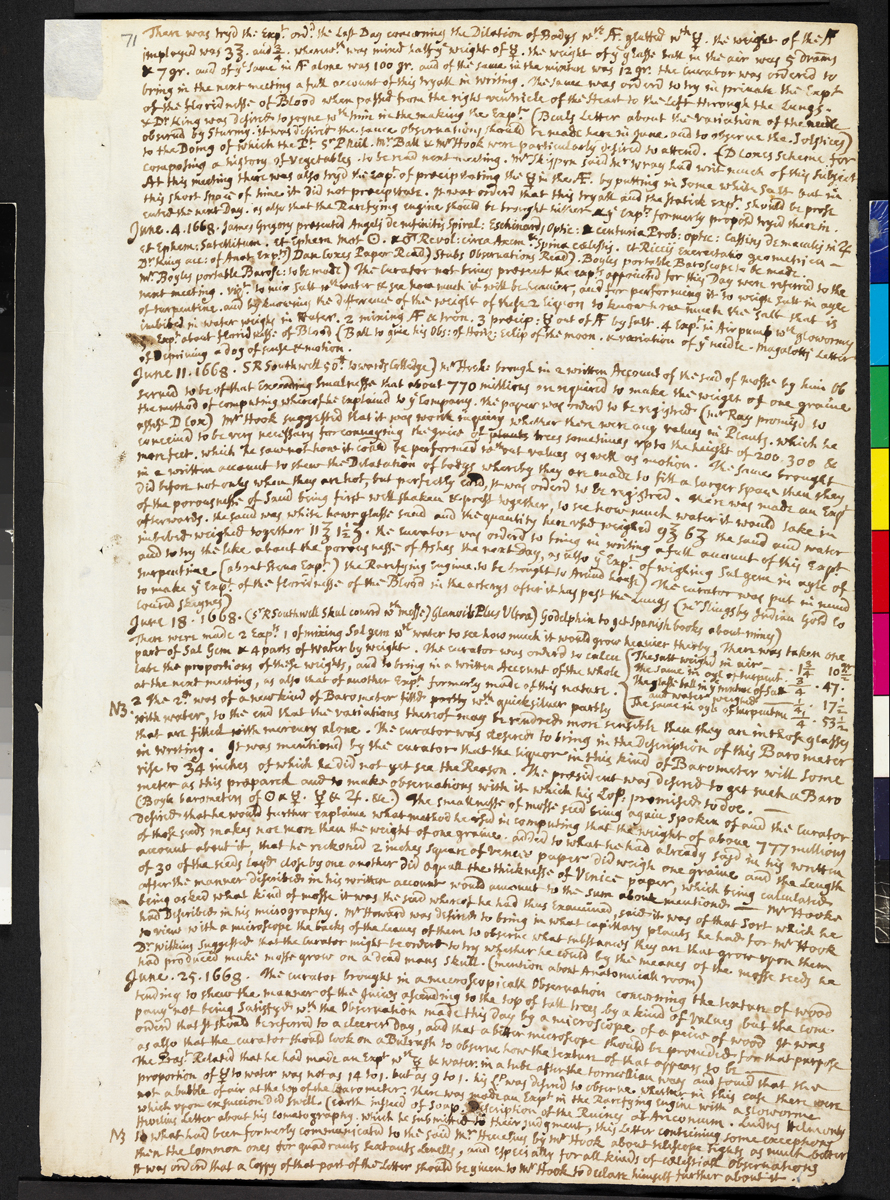 71
There was tryd the Expt. ordd. the Last Day concerning the Dilation of Bodys wth. Æ. glutted wth ☿. the weight of the Æ
imployed was 3℥. and ¾. wherewth. was mixd halfe ye weight of ☿. the weight of ye glasse ball in the air was 5 Drams
& 7 gr. and of ye same in Æ alone was 100 gr. and of the same in the mixture was 12 gr. the Curator was ordered to
bring in the next meeting a full account of this tryall in writing. The same was ordered to try in private the Expt
of the floridnesse of Blood when passed from the right ventricle of the Heart to the Left through the Lungs.
& Dr. King was desired to joyne wth him in the making the Expt. (Beals Letter about the variation of the needle
observd by Sturmy. it was desired the same observations should be made here in June. and to observe the Solstices)
to the Doing of which the Pt. Sr P. Neil. Mr. Ball & Mr Hook were particularly desired to attend. (D Lones scheme for
composing a history of vegetables. to be read next meeting. Mr Skippon said Mr wray had writ much of this subject
At this meeting there was also tryd the Exp. of precipitating the ☿ in the Æ. by putting in some white salt but in
this short space of time it did not precipitate. It was orderd that this tryall and the statick expt. should be prose
cuted the next Day. as also that the Rarifying engine should be brought hither & ye Expt formerly proposd tryd therein.
June. 4. 1668. James Gregory presented Angeli de infinitis Spiral: Eschinardi Optic: & centuria Prob: optic: Cassini de maculis in ♃
et Ephem: Satellitum. et Ephem mot ☉. & ♂ Revol: circa Axem. Spina cælesti. et Riccij Exercitatio geometrica —
Dr King acc: of Anot: Expt) Dan Coxes Paper Read) Stubs Observations Read). Boyles portable Baroscope to be made.
Mr. Boyles portable Barosc: to be made) The Curator not being present the expts appointed for this Day were referred to the
next meeting. vizt. to mix salt wth water & see how much it will be heavier, and for performing it to weigh salt in oyle
of turpentine. and by knowing the difference of the weight of these 2 liquors to know how much the salt that is
imbibed in water weighs in water. 2 mixing Æ & Iron. 3 precip: ☿ out of Æ by salt. 4 Expt. in Air pump wth glowworms
& Expt about floridnesse of Blood (Ball to give his Obs: of Horiz: Eclip of the moon. & variation of ye needle - Magalotti Letter
of Depriving a dog of sense & motion.
June 11. 1668. SR Southwell 50lt. towards Colledge) Mr. Hooke brought in a written Account of the seed of mosse by him ob
servd to be of that Exceeding smalnesse that about 770 millions are required to make the weight of one graine
the method of computing whereof he Explaind to ye Company. the paper was orderd to be registred (Mr Ray promisd to
assist D Cox) Mr Hook suggested that it was worth inquiry whether there were any valves in Plants. which he
conceivd to be very necessary for conveying the Juice of plants trees sometimes up to the height of 200. 300 &
more feet. which he saw not how it could be performed wthout valves as well as motion. The same brought
in a written account to shew the Dilatation of bodys whereby they are made to fill a larger space than they
Did before not only when they are hot, but perfectly cold, it was orderd to be registred. There was made an Expt
of the porousnesse of Sand being first well shaken & prest together, to see how much water it would take in
afterwards. the sand was white hower glasse sand and the quantity here usd weighed 9℥ 6ʒ the sand and water
imbibed weighed together 11℥ 1½ʒ. the Curator was ordered to bring in writing a full account of this Expt
and to try the like about the porousnesse of Ashes the next day, as also ye Expt. of weighing Sal gem in oyle of
turpentine (about Stone Expt.) the Rarifying Engine to be brought to Arund house) The curator was put in mind
to make ye Expt. of the floridnesse of the Blood in the arterys after it has past the Lungs (Mr Slingsby Indian Gold co
lourd
June 18. 1668. (Sr R Southwell Skul coverd wth mosse) Glanvils Plus Ultra) Godolphin to get spanish books about mines)
There were made 2 Expt. 1 of mixing Sal gem wth water to see how much it would grow heavier thirby. There was taken one
part of Sal Gem & 4 parts of water by weight. The Curator was orderd to calcu { The salt weighd in air — . 1 ¾ 10
late the proportions of these weights, and to bring in a written Account of the whole { the same in oyle of turpent. ¾. 47.
at the next meeting, as also that of another Expt. formerly made of this nature. { The glasse ball in ye mixture of salt
2 The 2d. was of a new kind of Barometer filled partly wth quicksilver partly { and water weighed — ¼. 17½
N3. with water, to the end that the variations therof may be rendred more sensible { The same in oyle of turpentine ¼. 53½
than they are in those glasses
that are filled with mercury alone. The curator was desired to bring in the Description of this Barometer
in writing. It was mentiond by the curator that the liquor in this kind of Barometer will some
rise to 34 inches of which he did not yet see the Reason. The president was desired to get such a Baro
meter as this prepared and to make observations with it which his Lop: promised to doe. —
(Boyle barometers of ☉ & ☿. ☿ & ♃. &c.) The smallnesse of mosse seed being again spoken of and the Curator
Desired that he would further Explaine what method he usd in computing that the weight of above 777 millions
of those seeds makes not more than the weight of one graine. added to what he had already sayd in his written
account about it, that he reckoned 2 inches square of venice paper did weigh one graine and the Length
of 30 of the seeds Layd close by one another did equall the thicknesse of Venice paper, which being calculated
after the manner described in his written account would amount to the sum above mentioned — Mr Hooke
being asked what kind of mosse it was the seed whereof he had thus Examined, said it was of that Sort which he
had Described in his micrography. Mr Howard was desired to bring in what capillary plants he had for Mr Hook
to view with a microscope the backs of the Leaves of them to observe what substances they are that grow upon them
Dr. Wilkins Suggested that the Curator might be orderd to try whether he could by the meanes of the mosse seeds he
had produced make mosse grow on a dead mans skull. (mention about Anatomicall room)
June. 25. 1668. The curator brought in a microscopicall Observation concerning the texture of wood
tending to shew the manner of the Juices ascending to the top of tall trees by a kind of valves but the com-
pany not being satisfyd wth the Observation made this day by a microscope of a peice of wood It was
orderd that It should be referred to a cleerer Day, and that a better microscope should be provided for that purpose
as also that the curator should look on a Bulrush to observe how the texture of that appears to be —
The Pres. Related that he had made an Expt wth ☿ & water in a tube after the torricellian way and found that the
proportion of ☿ to water was not as 14 to 1. but as 9 to 1. his Lop was desired to observe whether in this case there were
not a bubble of air at the top of the barometer. There was made an Expt in the Rarifying Engine with a sloworme
which upon exsuccion did swell (Earth instead of soap. Description of the Ruins at Ariconium. Ludus Helmonts
Hevelius Letter about his cometography. which he submitted to their Judgment, this Letter containing some exceptions
N3 to what had been formerly communicated to the said Mr Hevelius by Mr Hook about teliscope sights as much better
then the Common ones for quadrants sextants Levells, and especially for all kinds of celestiall observations
It was orderd that a Coppy of that part of the Letter should be given to Mr Hook to declare himself further about it.